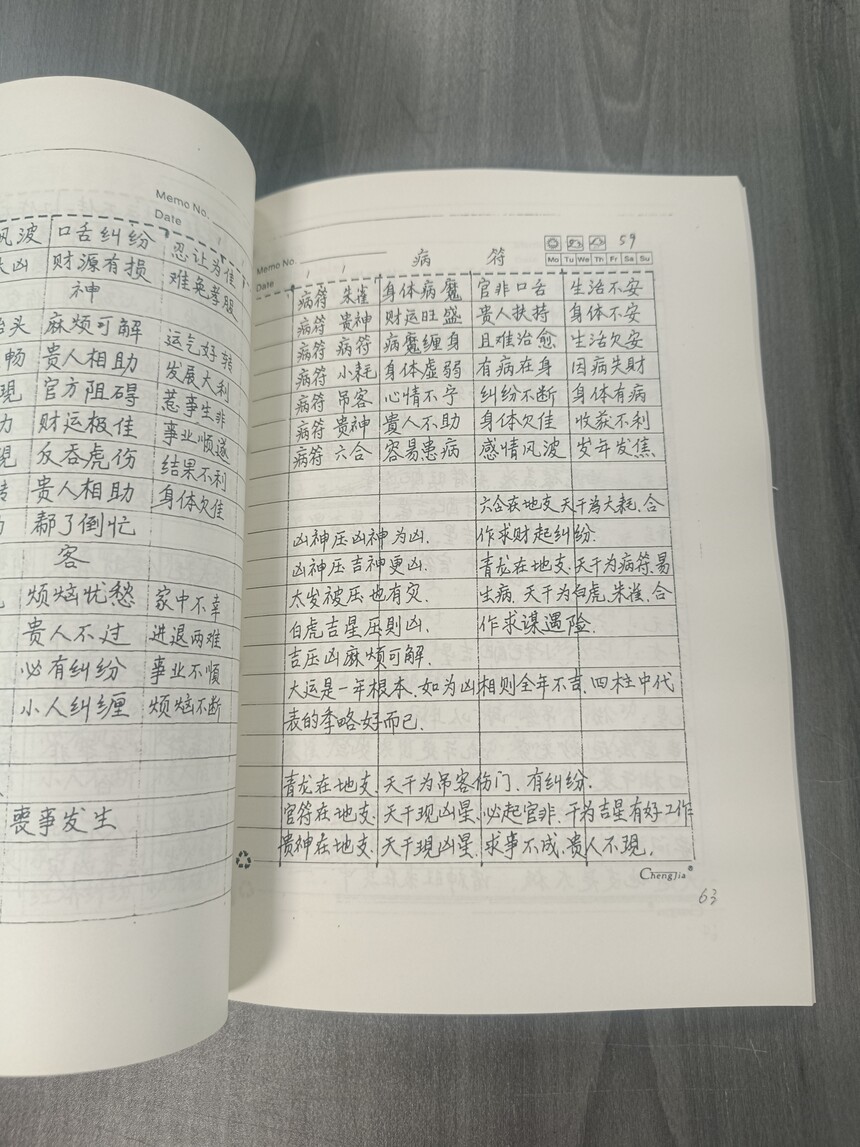 Memo No.
Date
风波 口舌纠纷 忍让为佳
大凶 财源有损 难免孝服
神
抬头 麻烦可解 运气好转
畅 贵人相助 发展大利
现 官方阻碍 惹事生非
力 财运极佳 事业顺遂
现 反吞虎伤 结果不利
转 贵人相助 身体欠佳
都了倒忙
客
烦恼忧愁 家中不幸
贵人不过 进退两难
必有纠纷 事业不顺
小人纠缠 烦恼不断
丧事发生
59
Memo No. 病 符 Mo Tu We Th Fr Sa Su
Date
病符 朱雀 身体病魔 官非口舌 生活不安
病符 贵神 财运旺盛 贵人扶持 身体不安
病符 病符 病魔缠身 且难治愈 生活欠安
病符 小耗 身体虚弱 有病在身 因病失财
病符 吊客 心情不宁 纠纷不断 身体有病
病符 贵神 貴人不助 身体欠佳 收获不利
病符 六合 容易患病 感情风波 发年发焦
六合在地支.天干为大耗.合
凶神压凶神为凶. 作求财起纠纷.
凶神压吉神更凶. 青龙在地支.天干为病符.易
太岁被压也有灾. 生病.天干为白虎.朱雀.合
白虎吉星压则凶. 作求谋遇险.
吉压凶麻烦可解.
大运是一年根本.如为凶相则全年不吉.四柱中代
表的季略好而已.
青龙在地支.天干为吊客伤门.有纠纷.
官符在地支.天干现凶星.必起官非.干为吉星有好工作
贵神在地支.天干现凶星.求事不成.贵人不现.
ChengJia
63